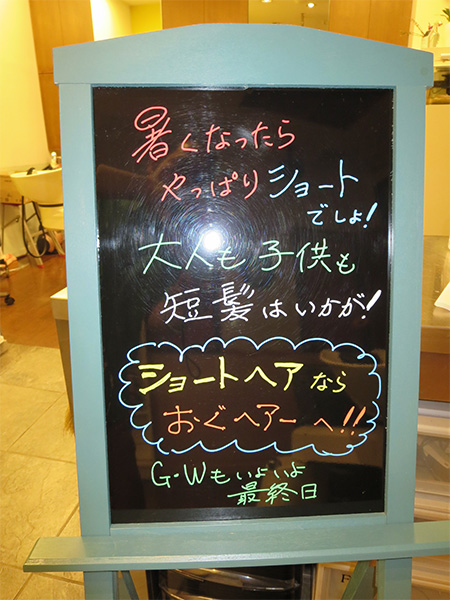 暑くなったら
やっぱりショート
でしょ!
大人も子供も
短髪はいかが!
ショートヘアなら
おぐヘアーへ!!
G・Wもいよいよ
最終日